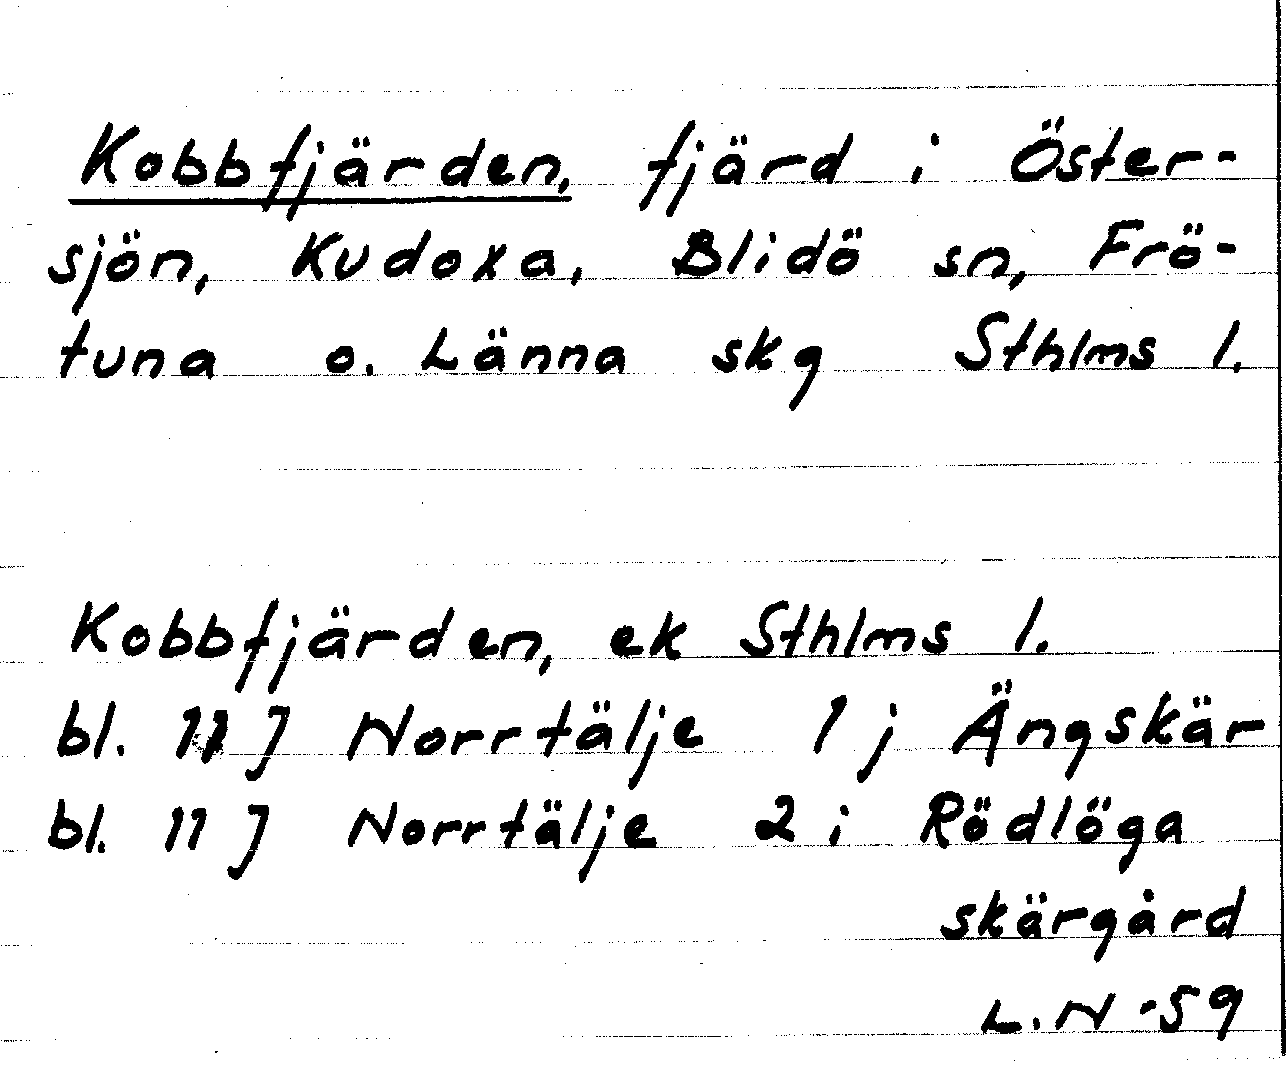 Kobbfjärden, fjärd i Öster-
sjön, Kudoxa, Blidö sn, Frö-
tuna o. Länna skg Sthlms l.
Kobbfjärden, ek Sthlms l.
bl. 11 J Norrtälje 1 j Ängskär
bl. 11 J Norrtälje 2 i Rödlöga
skärgård
L.N -59